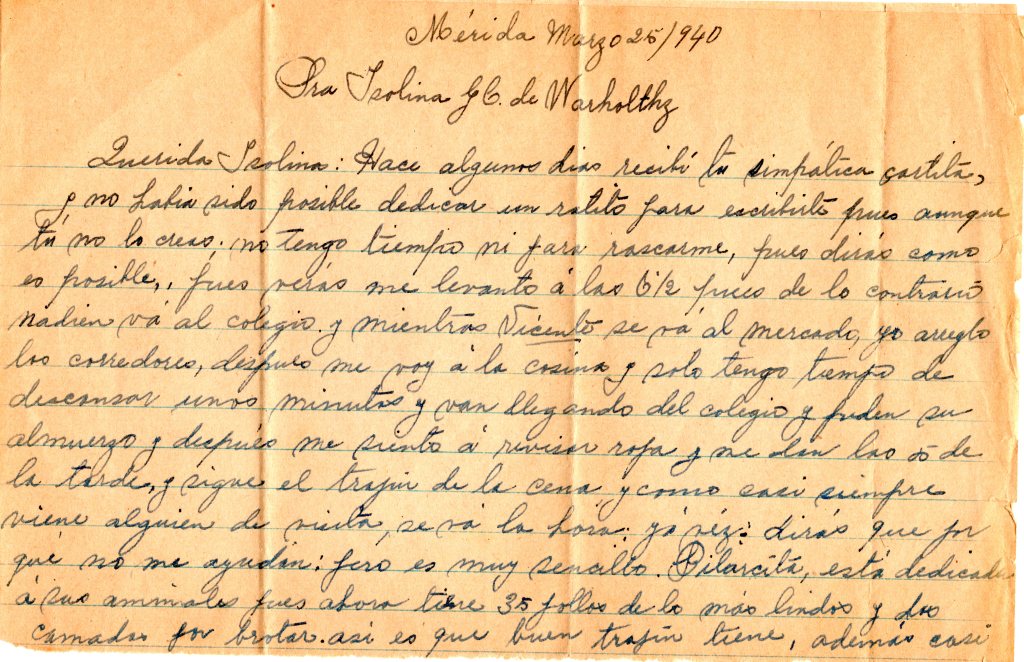 Mérida Marzo 25/940
Sra Isolina G C. de Warholthz
Querida Isolina: Hace algunos dias recibí tu simpática cartita,
y no habia sido posible dedicar un ratito para escribirte pues aunque
tú no lo creas. no tengo tiempo ni para rascarme, pues dirás como
es posible,. pues verás me levanto á las 6½ pues de lo contrario
nadien vá al colegio. y mientras Vicente se vá al mercado, yo arreglo
los corredores, despues me voy á la cosina y solo tengo tiempo de
descansar unos minutos y van llegando del colegio y piden su
almuerzo y después me siento á revisar ropa y me dán las de
la tarde, y sigue el trajin de la cena y como casi siempre
viene alguien de visita, se vá la hora: yá véz: dirás que por
qué no me ayudán: pero es muy sencillo. Pilarcitá, está dedicada
á sus animales pues ahora tiene 35 pollos de lo más lindos y dos
camadas por brotar. asi es que buen trajín tiene, además casi